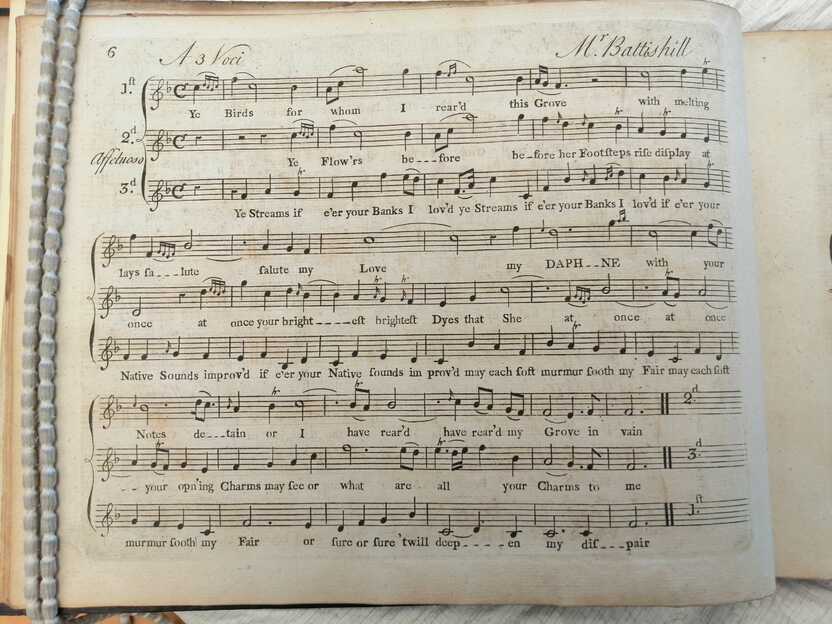 6 A 3 Voci Mr. Battishill
1.st
Ye Birds for whom I rear'd this Grove with melting
2.d
Affetuoso
Ye Flow'rs be---fore be-fore her Footſteps riſe diſplay at
3.d
Ye Streams if e'er your Banks I lov'd ye Streams if e'er your Banks I lov'd if e'er your
lays ſa---lute ſalute my Love my DAPH--NE with your
once at once your bright----eſt brighteſt Dyes that She at once at once
Native Sounds improv'd if e'er your Native ſounds im prov'd may each ſoft murmur ſooth my Fair may each ſoft
Notes de--tain or I have rear'd have rear'd my Grove in vain 2.d
--your opn'ing Charms may ſee or what are all your Charms to me 3.d
murmur ſooth my Fair or ſure or ſure 'twill deep----en my diſ---pair 1.st